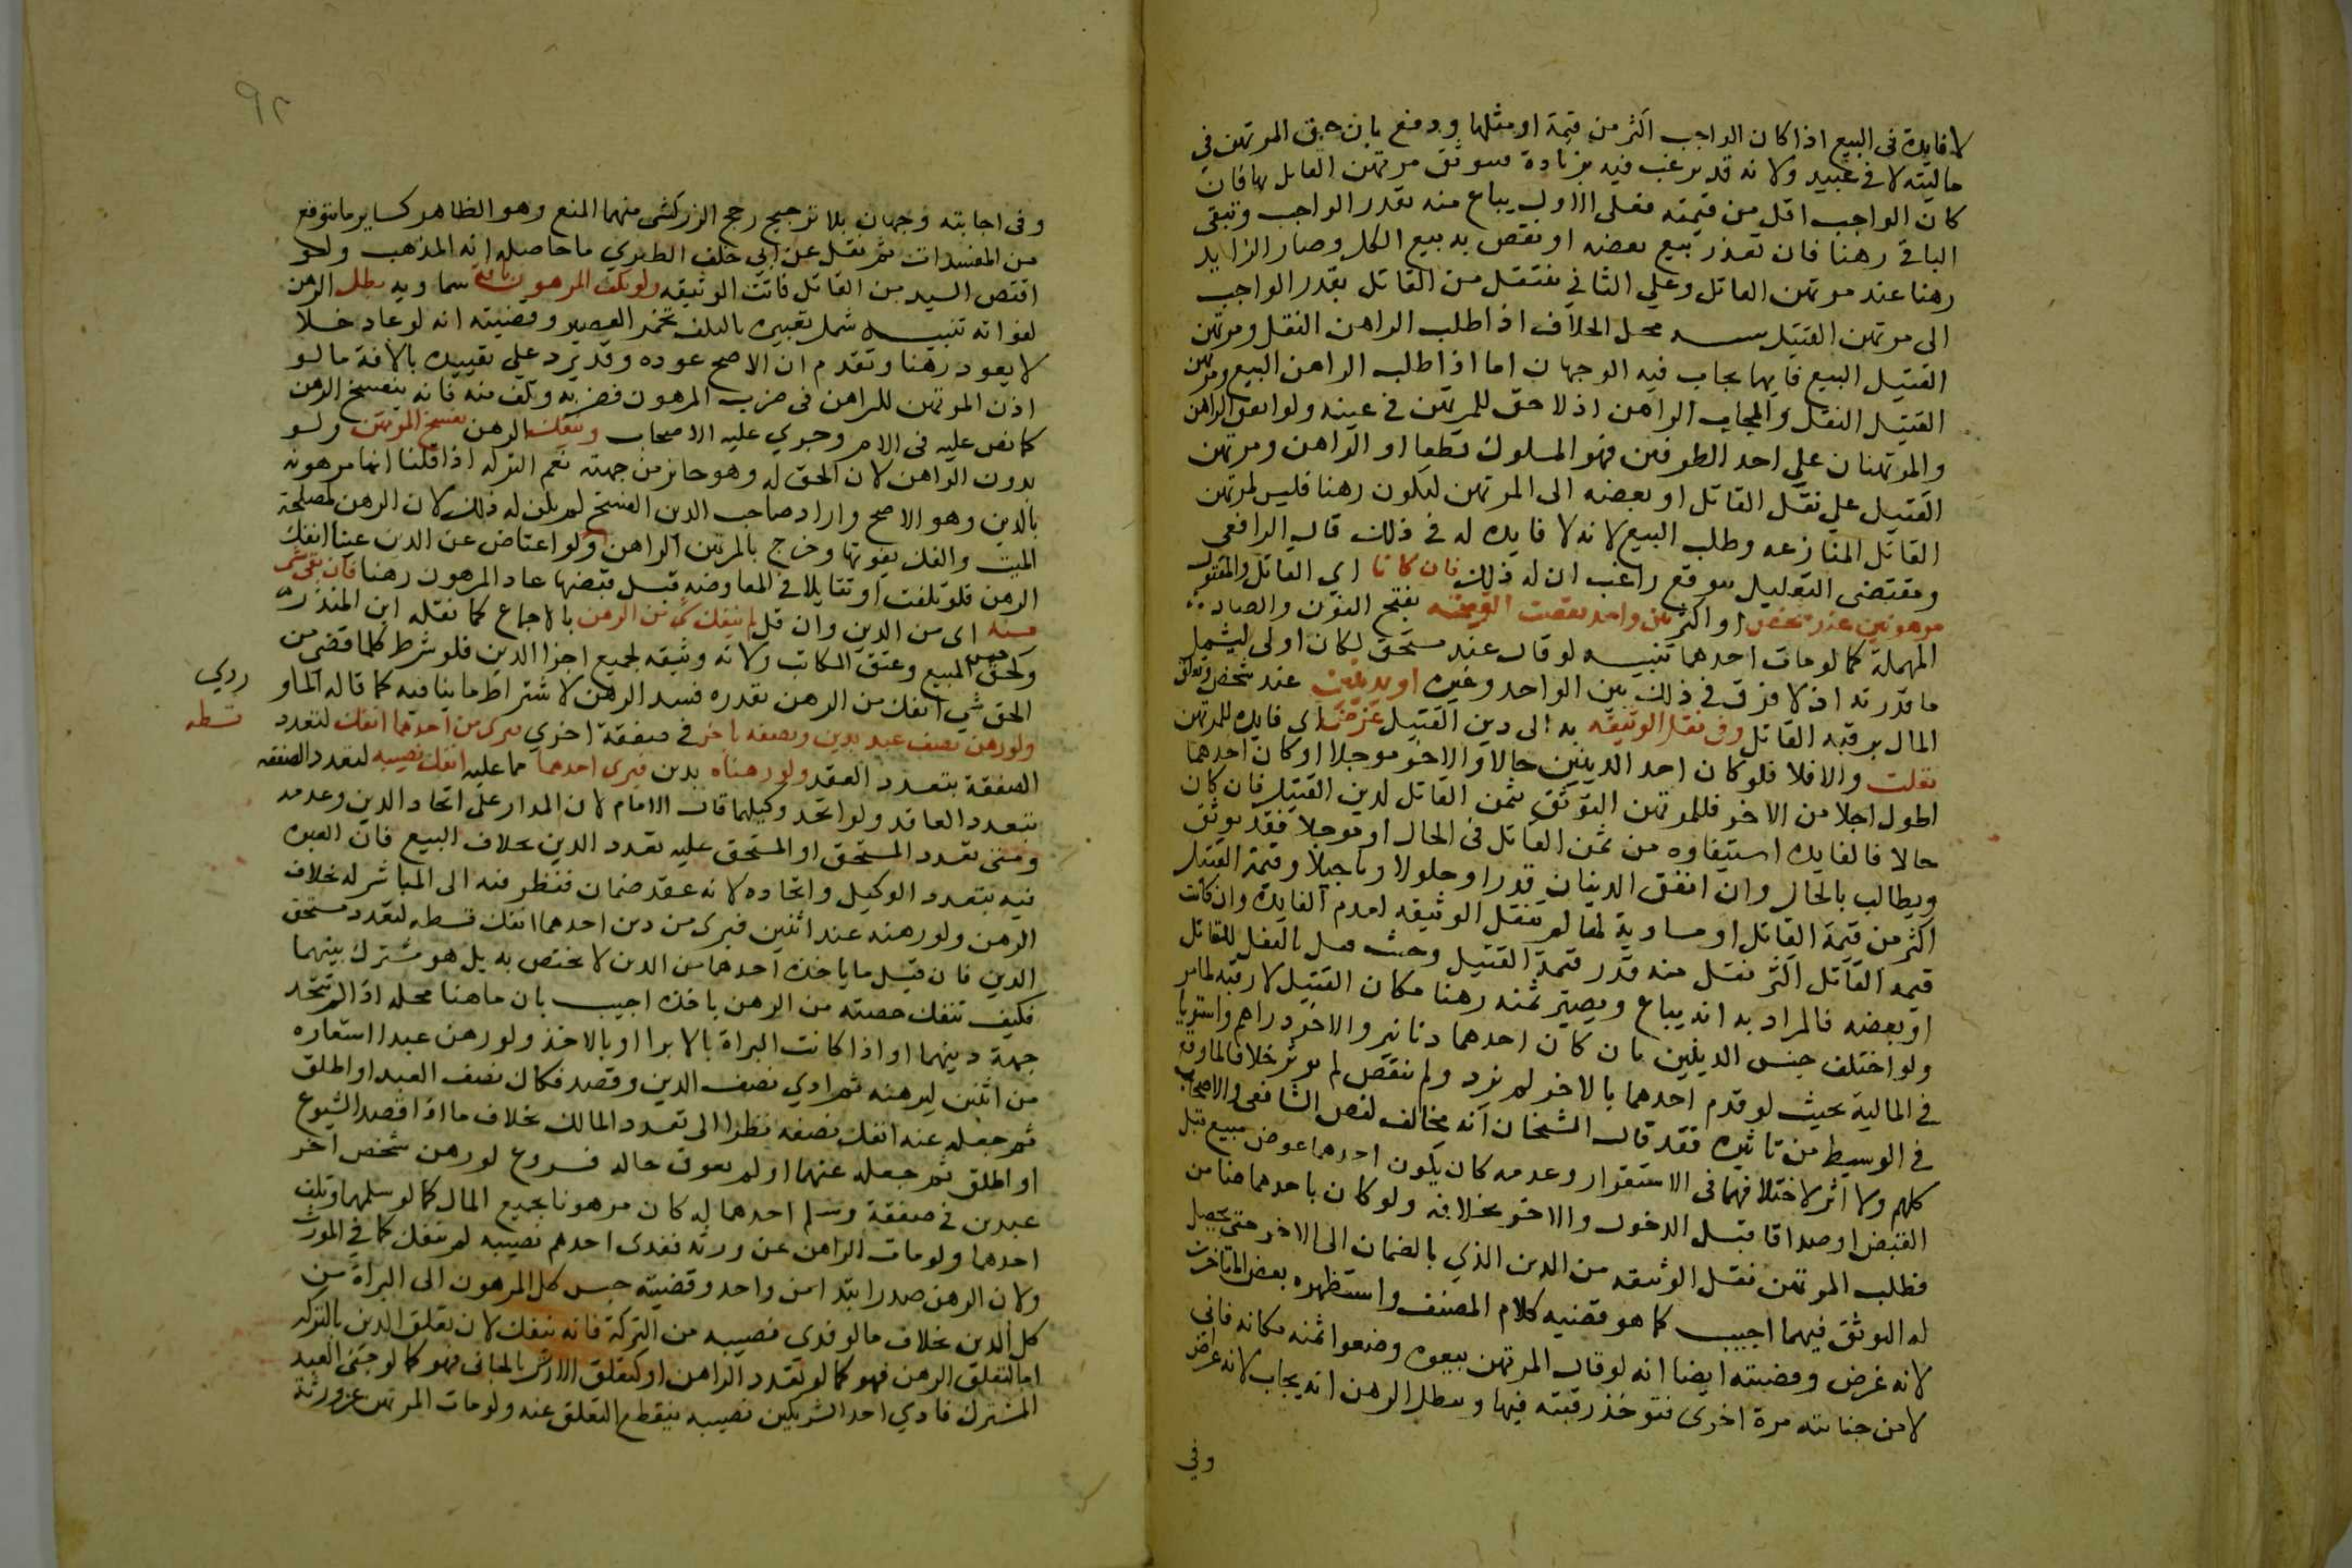 لا فايدة فى البيع اذا كان الواجب اكثر من قيمته او مثلها ودفع بان حق المرتهن في
ماليته لا في عينه ولانه قد يرغب فيه بزيادة فيتوثق مرتهن القاتل بها فان
كان الواجب اقل من قيمته فعلى الاول يباع منه بقدر الواجب وتبقى
الباقى رهنا فان تعذر بيع بعضه او نقص به بيع الكل وصار الزايد
رهنا عند مرتهن القاتل وعلى الثاني ينتقل من القاتل بقدر الواجب
الى مرتهن القتيل محل الخلاف اذا طلب الراهن النقل ومرتهن
القتيل البيع فايهما يجاب فيه الوجهان اما اذا طلب الراهن البيع ومرتهن
القتيل النقل والمجاب الراهن اذ لا حق للمرتهن في عينه ولو اتفق الراهن
والمرتهنان على احد الطرفين فهو المسلوك قطعا او الراهن ومرتهن
القتيل على نقل القاتل او بعضه الى المرتهن ليكون رهنا فليس لمرتهن
القاتل المنازعه وطلب البيع لانه لا فايده له في ذلك قال الرافعي
ومقتضى التعليل بتوقع راغب ان له ذلك فان كانا اي القاتل والمقتول
مرهونين عند شخص او اكثر بدين واحد نقصت الوثيقه بفتح النون والصاد
المهملة كما لو مات احدهما تنبيه لو قال عند مستحق لكان اولى ليشمل
ما قدرته اذ لا فرق في ذلك بين الواحد وغيره او بدينين عند شخص وتعلق
المال برقبه القاتل وفى نقل الوثيقه به الى دين القتيل غرض اى فايده للمرتهن
نقلت والا فلا فلو كان احد الدينين حالا والاخر موجلا او كان احدهما
اطول اجلا من الاخر فللمرتهن التوثق بثمن القاتل لدين القتيل فان كان
حالا فالفايده استيفاوه من ثمن القاتل فى الحال او موجلا فقد توثق
ويطالب بالحال وان اتفق الدينان قدرا وحلولا وتاجيلا وقيمة القتيل
اكثر من قيمة القاتل او مساوية لها لم تنقل الوثيقه لعدم الفايدة وان كانت
قيمه القاتل اكثر نقل منه قدر قيمة القتيل وحيث قيل بالنقل للقاتل
او بعضه فالمراد به انه يباع ويصير ثمنه رهنا مكان القتيل لا رقبته لما مر
ولو اختلف جنس الدينين بان كان احدهما دنانير والاخر دراهم واستويا
في المالية بحيث لو قدم احدهما بالاخر لم يزد ولم ينقص لم يوثر خلافا لما وقع
في الوسيط من تاثيره فقد قال الشيخان انه مخالف لنص الشافعى والاصحاب
كلهم ولا اثر لاختلافهما فى الاستقرار وعدمه كان يكون احدهما عوض مبيع قبل
القبض او صداقا قبل الدخول والاخر بخلافه ولو كان باحدهما ضامن
فطلب المرتهن نقل الوثيقه من الدين الذي بالضمان الى الاخر حتى يحصل
له التوثق فيهما اجيب كما هو قضيه كلام المصنف واستظهره بعض المتاخرين
لانه غرض وقضيته ايضا انه لو قال المرتهن بيعوه وضعوا ثمنه مكانه فانى
لا امن جنايته مرة اخرى فتوخذ رقبته فيها ويبطل الرهن انه يجاب لانه غرض
وفي
٩٢
وفى اجابته وجهان بلا ترجيح رجح الزركشى منهما المنع وهو الظاهر كساير ما يتوقع
من المفسدات ثم نقل عن ابى خلف الطبري ما حاصله انه المذهب ولو
اقتص السيد من القاتل فاتت الوثيقه ولو تلف المرهون بآفة سماويه بطل الرهن
لفواته تنبيه شمل تعبيره بالتلف تخمر العصير وقضيته انه لو عاد خلا
لا يعود رهنا وتقدم ان الاصح عوده وقد يرد على تقييده بالافة ما لو
اذن المرتهن للراهن فى ضرب المرهون فضربه وتلف منه فانه ينفسخ الرهن
كما نص عليه فى الام وجرى عليه الاصحاب وينفك الرهن بفسخ المرتهن ولو
بدون الراهن لان الحق له وهو جائز من جهته نعم التركه اذا قلنا انها مرهونه
بالدين وهو الاصح واراد صاحب الدين الفسخ لم يكن له ذلك لان الرهن لمصلحة
الميت والفك يفوتها وخرج بالمرتهن الراهن ولو اعتاض عن الدين عينا انفك
الرهن فلو تلفت او تقايلا في المعاوضه قبل قبضها عاد المرهون رهنا فان بقى شى
منه اى من الدين وان قل لم ينفك شى من الرهن بالاجماع كما نقله ابن المنذر
وكحق حبس المبيع وعتق المكاتب ولانه وثيقه لجميع اجزا الدين فلو شرط كلما قضى من
الحق شي انفك من الرهن بقدره فسد الرهن لاشتراط ما ينافيه كما قاله الماو
ردي
ولو رهن نصف عبد بدين ونصفه باخر في صفقة اخري فبرى من احدهما انفك لتعدد
قسطه
الصفقة بتعدد العقد ولو رهناه بدين فبرى احدهما مما عليه انفك نصيبه لتعدد الصفقه
بتعدد العاقد ولو اتحد وكيلهما قال الامام لان المدار على اتحاد الدين وعدمه
ومتى تعدد المستحق او المستحق عليه تعدد الدين بخلاف البيع فان العبره
فيه بتعدد الوكيل واتحاده لانه عقد ضمان فينظر فيه الى المباشر له بخلاف
الرهن ولو رهنه عند اثنين فبرى من دين احدهما انفك قسطه لتعدد مستحق
الدين فان قيل ما ياخذه احدهما من الدين لا يختص به بل هو مشترك بينهما
فكيف تنفك حصته من الرهن باخذه اجيب بان ما هنا محله اذا لم تتحد
جهة دينهما او اذا كانت البراة بالابرا او بالاخذ ولو رهن عبدا استعاره
من اثنين ليرهنه ثم ادي نصف الدين وقصد فكاك نصف العبد او اطلق
ثم جعله عنه انفك نصفه نظرا الى تعدد المالك بخلاف ما اذا قصد الشيوع
او اطلق ثم جعله عنهما او لم يعرف حاله فروع لو رهن شخص اخر
عبدين في صفقة وسلم احدهما له كان مرهونا بجميع المال كما لو سلمهما وتلف
احدهما ولو مات الراهن عن ورثه ففدى احدهم نصيبه لم ينفك كما في المورث
ولان الرهن صدر ابتدا من واحد وقضيته حبس كل المرهون الى البراة من
كل الدين بخلاف ما لو فدى نصيبه من التركة فانه ينفك لان تعلق الدين بالتركه
اما كتعلق الرهن فهو كما لو تعدد الراهن او كتعلق الارش بالجانى فهو كما لو جنى العبد
المشترك فادي احد الشريكين نصيبه ينقطع التعلق عنه ولو مات المرتهن عن ورثة